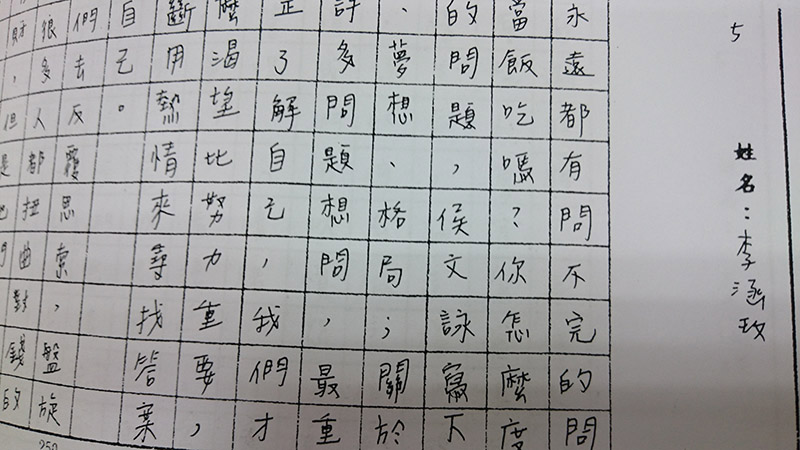 5
姓名：李涵玫
永遠都有問不完的問
當飯吃嗎？你怎麼度
的問題，侯文詠寫下
、夢想、格局；關於
許多問題想問，最重
正了解自己，我們才
麼渴望比努力重要，
斷用熱情來尋找答案
自己。
們去反覆思索，盤旋
很多人都扭曲對錢的
財，但是
250